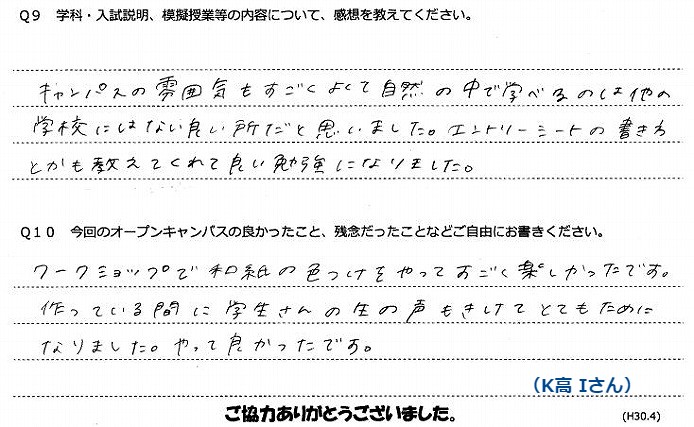 Q9 学科・入試説明、模擬授業等の内容について、感想を教えてください。
キャンパスの雰囲気もすごくよくて自然の中で学べるのは他の
学校にはない良い所だと思いました。エントリーシートの書き方
とかも教えてくれて良い勉強になりました。
Q10 今回のオープンキャンパスの良かったこと、残念だったことなどご自由にお書きください。
ワークショップで和紙の色つけをやってすごく楽しかったです。
作っている間に学生さんの生の声もきけてとてもために
なりました。やって良かったです。
(K高 Iさん)
ご協力ありがとうございました。
(H30.4)